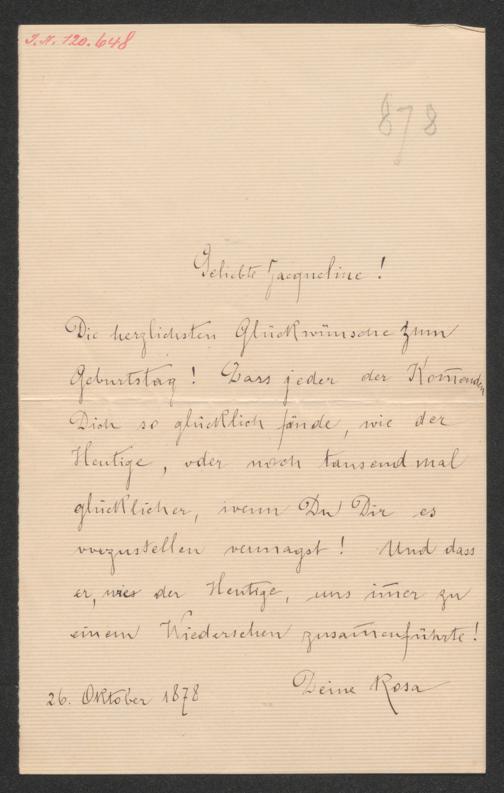 J.N. 120.648
878
Geliebte Jacqueline!
Die herzlichsten Glückwünsche zum
Geburtstag! Dass jeder der Kom̄enden
Dich so glücklich fände, wie der
Heutige, oder noch tausendmal
glücklicher, wenn Du Dir es
vorzustellen vermagst! Und dass
er, wie der Heutige, uns im̄er zu
einem Wiedersehen zusam̄enführte!
Deine Rosa
26. Oktober 1878